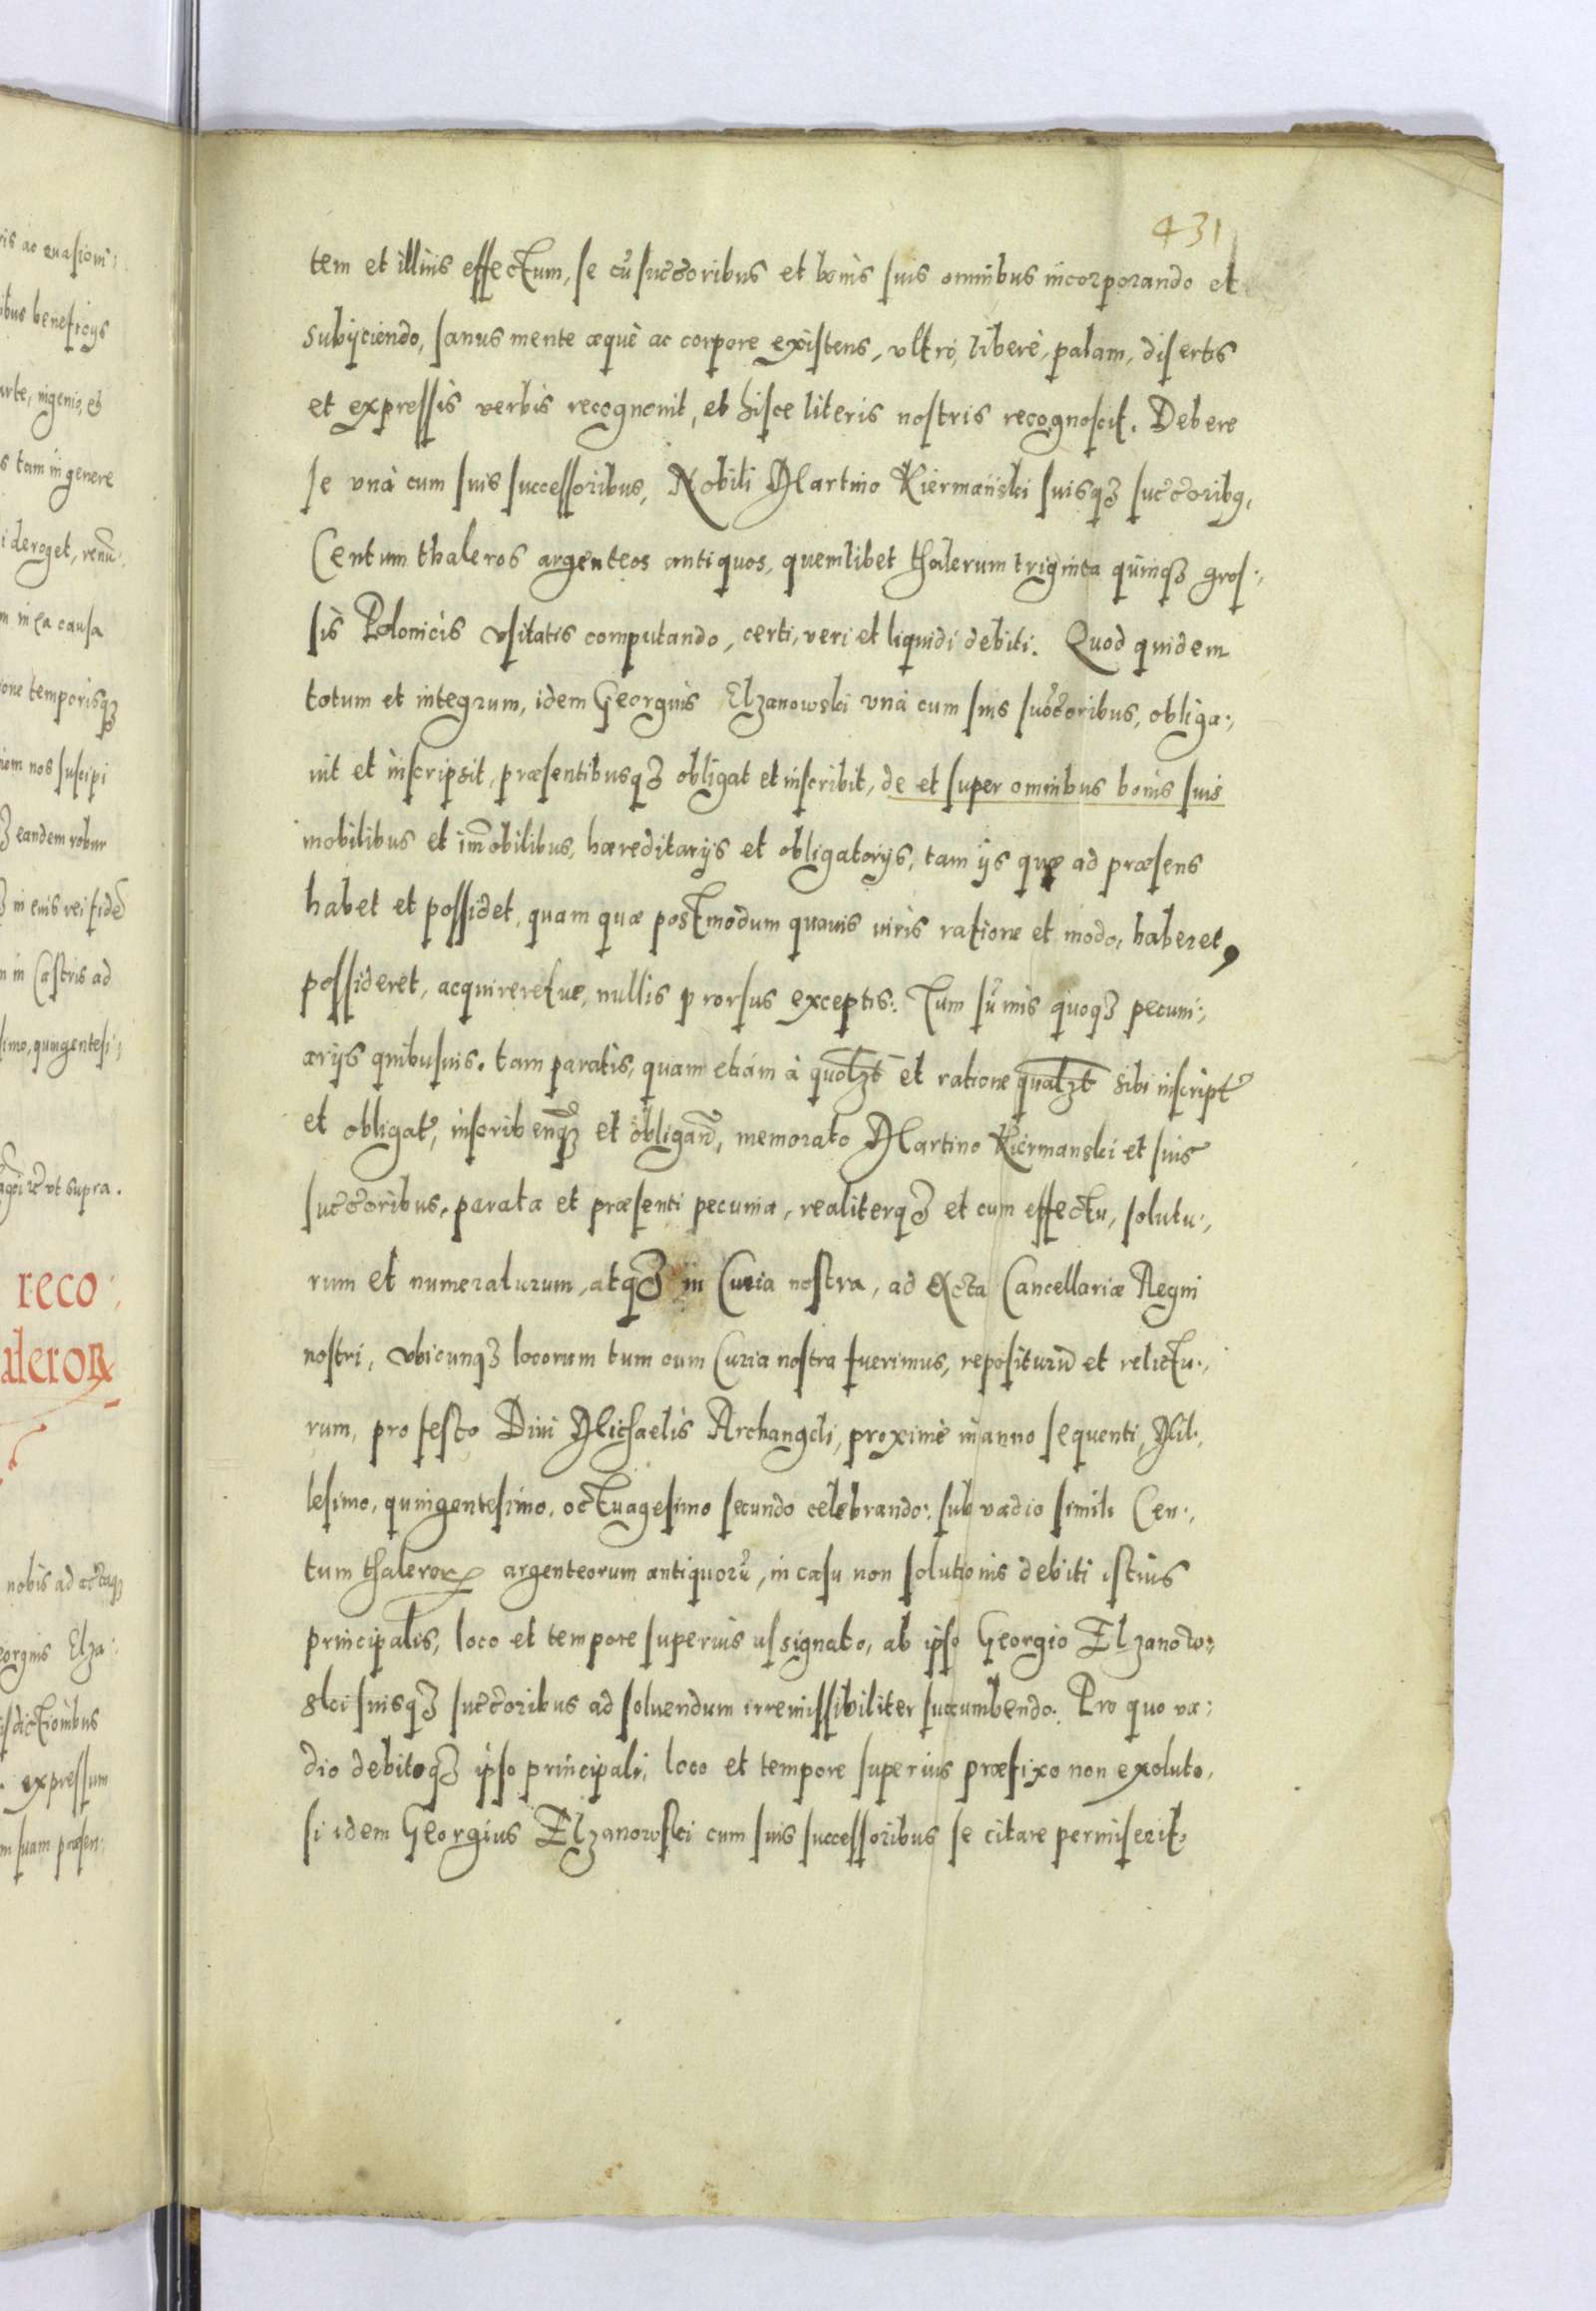 ris ac euasioni:
ibus beneficijs
arte, ingenio, et
s tam in genere
i deroget, renũ:
m in ea causa
ione temporisqꝫ
iem nos suscipi
ꝫ eandem robur
ꝫ in eius rei fidẽ
m in Castris ad
simo, quingentesi:
ut supra.
reco:
aleroꝝ
nobis ad actaqꝫ
eorgius Elza:
isdictionibus
expressum
m suam præsen:
431
tem et illius effectum, se cũ succ̃oribus et bonis suis omnibus incorporando et
subijciendo, sanus mente æquè ac corpore existens, vltrò, liberè, palam, disertis
et expressis verbis recognouit, et hisce literis nostris recognoscit. Debere
se vnà cum suis successoribus, Nobili Martino Kiermański suisqꝫ succ̃oribꝯ,
Centum thaleros argenteos antiquos, quemlibet thalerum triginta quinqꝫ gros:
sis Polonicis vsitatis computando, certi, veri et liquidi debiti. Quod quidem
totum et integrum, idem Georgius Elzanowski vnà cum suis succ̃oribus, obliga:
uit et inscripsit, præsentibusqꝫ obligat et inscribit, de et super omnibus bonis suis
mobilibus et im̃obilibus, hæreditarijs et obligatorijs, tam ijs quæ ad præsens
habet et possidet, quam quæ postmodum quauis iuris ratione et modo, haberet,
possideret, acquireretue, nullis prorsus exceptis: Tum sũmis quoqꝫ pecuni:
arijs quibusuis. tam paratis, quam etiam à quot̃zt et ratione qual̃zt sibi inscript̃
et obligat̃, inscribenqꝫ et obligañ, memorato Martino Kiermanski et suis
succ̃oribus, parata et præsenti pecunia, realiterqꝫ et cum effectu, solutu:
rum et numeraturum, atqꝫ in Curia nostra, ad Acta Cancellariæ Regni
nostri, vbicunqꝫ locorum tum cum Curia nostra fuerimus, repositurũ et relictu:
rum, pro festo Diui Michaelis Archangeli, proximè in anno sequenti, Mil:
lesimo, quingentesimo, octuagesimo secundo celebrando: sub vadio simili Cen:
tum thaleroꝝ argenteorum antiquorũ, in casu non solutionis debiti istius
principalis, loco et tempore superius assignato, ab ipso Georgio Elzanow:
ski suisqꝫ succ̃oribus ad soluendum irremissibiliter succumbendo. Pro quo va:
dio debitoqꝫ ipso principali, loco et tempore superius præfixo non exoluto,
si idem Georgius Elzanowski cum suis successoribus se citare permiserit,